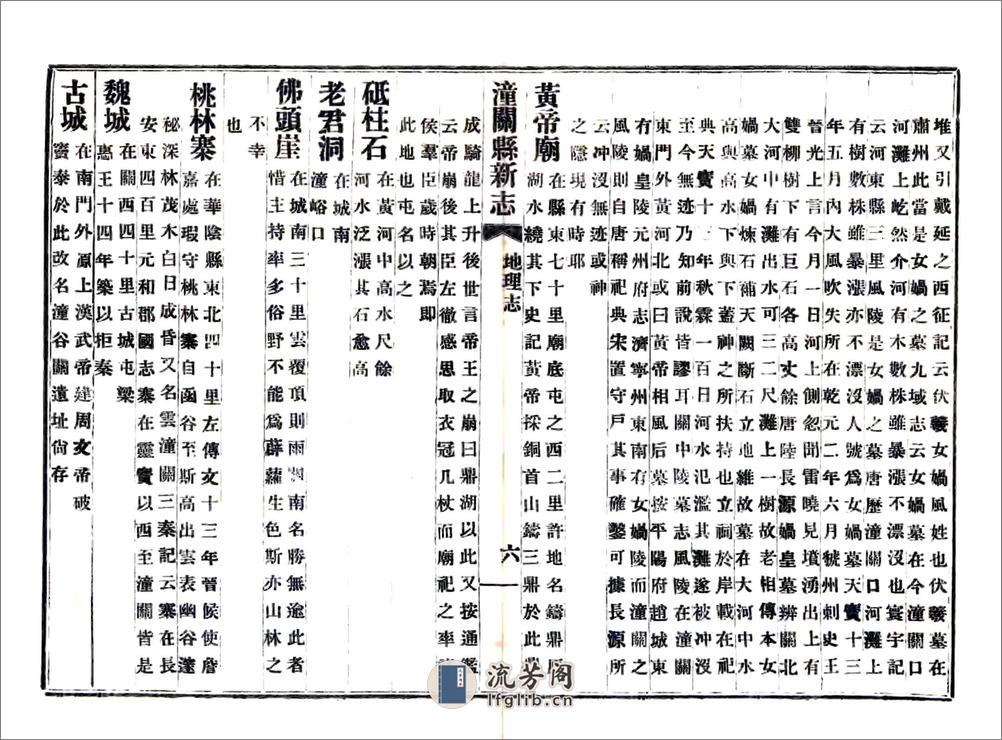 堆又引戴延之西征記云伏羲女媧風姓也伏羲墓在
肅州此當是女媧之墓九域志云女媧墓在今潼關口
河灘上屹然介河有木數株雖暴漲不漂沒也寰宇記
云河東縣三里風陵是女媧之墓唐歷潼關口河灘上
有樹數株雖暴漲亦不漂沒人號爲女媧墓天寶十三
年五月內大風吹失所在乾元二年六月虢州刺史王
晉光上言今月一日河上側忽聞雷曉見墳湧出上有
雙柳樹下有巨石各高丈餘唐陸長源媧皇墓辨關北
大河中有灘出水可三二尺灘上一樹故老相傳本女
媧墓女媧煉石補天闕斷石立地維故墓在大河中水
高與高水下與下蓋神之所扶持也立祠於岸載在祀
典天寶十三年秋霖一百日河水氾濫其灘遂被冲沒
至今無迹乃知前說皆謬耳關中陵墓志風陵在潼關
東門外黃河北或曰黃帝相風后墓按平陽府趙城東
有媧皇陵媧州府志濟寧州東南有女媧陵而潼關之
風陵則自唐元稱祀典宋置守戶其事確鑿可據長源所
云冲沒無迹或神
之隱現有時耶
黃帝廟 在縣東七十里廟底屯之西二里許地名鑄鼎原
湖水繞其下史記黃帝採銅首山鑄三鼎於此鼎
潼關縣新志 地理志 六
成騎龍上升後世言帝王之崩曰鼎湖以此又按通鑑
云帝崩後其臣左徹感思取衣冠几杖而廟祀之率諸
侯羣臣歲時朝焉即
此地也屯名以之
砥柱石 在黃河中高水尺餘
河水泛漲其石愈高
老君洞 在城南
潼峪口
佛頭崖 在城南三十里雲覆頂則雨洞南名勝無逾此者
惜主持率多俗野不能爲薜蘿生色斯亦山林之
不幸
也
桃林寨 在華陰縣東北四十里左傳文十三年晉侯使詹
嘉處瑕守桃林寨自函谷至斯高出雲表幽谷邃
秘深林茂木白日成昏又名雲潼關三秦記云寨在長
安東四百里元和郡國志寨在靈寶以西至潼關皆是
魏城 在關西四十里古城屯梁
惠王十四年築以拒秦
古城 在南門外原上漢武帝建周文帝破
竇泰於此改名潼谷關遺址尙存
流芳阁
lfglib.cn